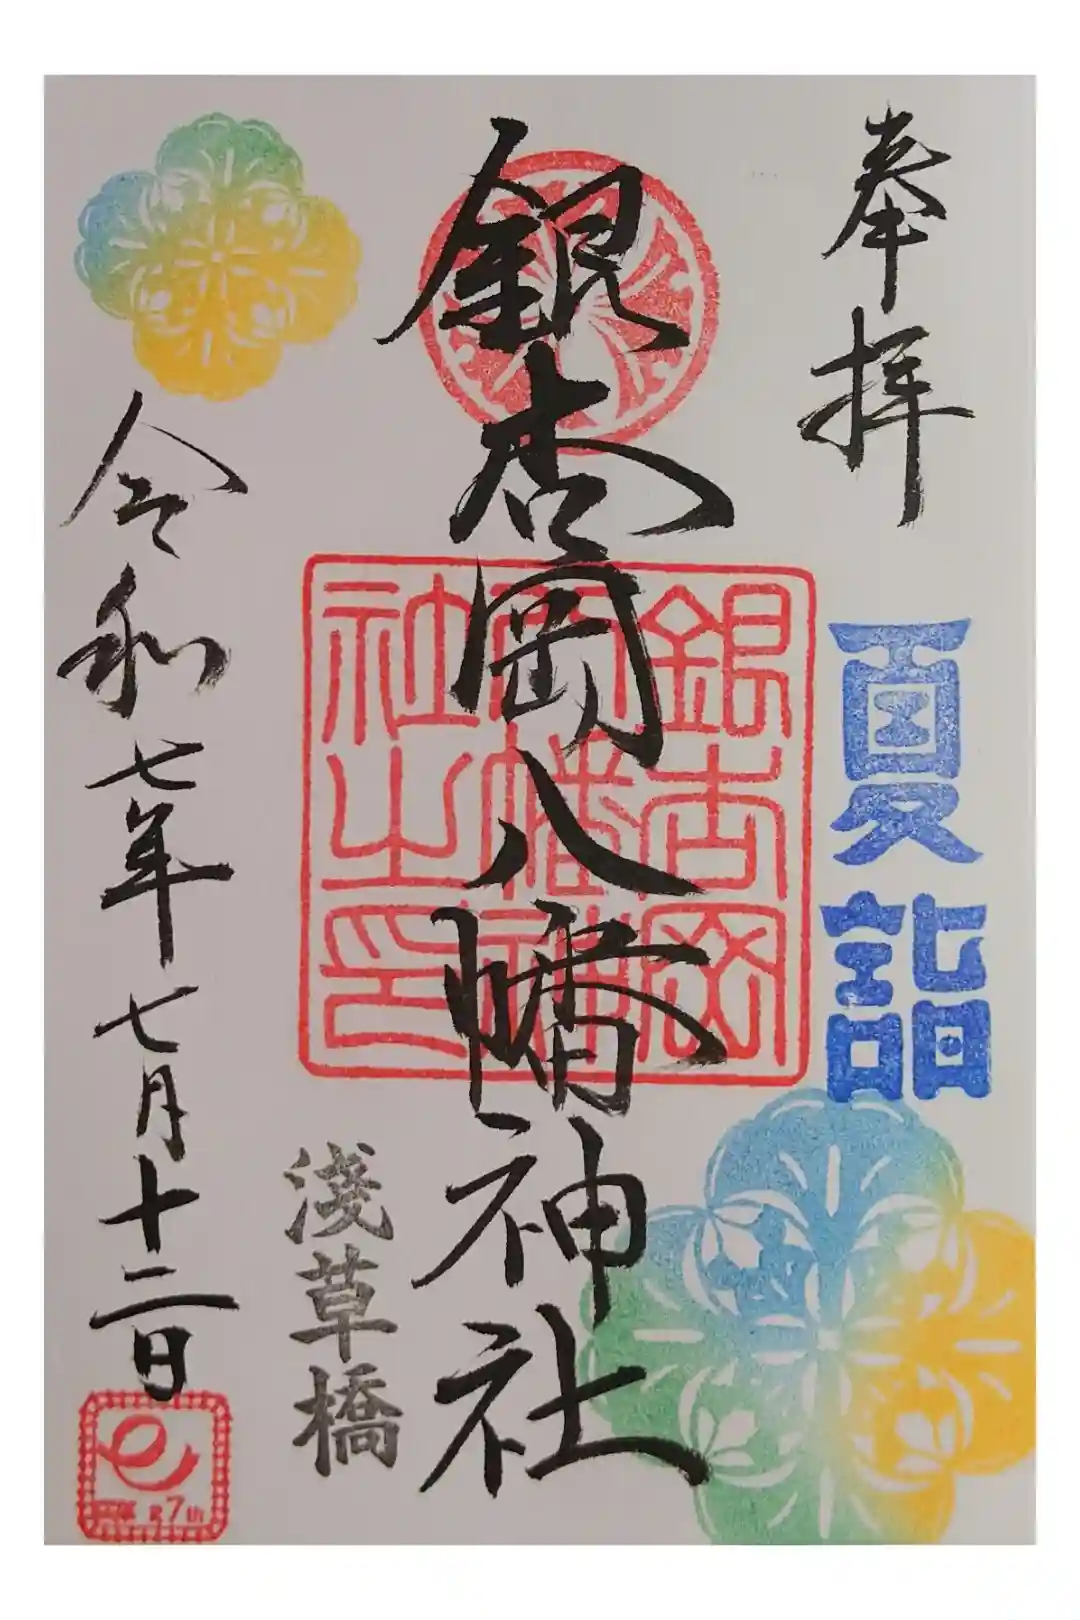 奉拝
夏詣
銀杏岡八幡神社
銀杏岡
八幡神
社之印
浅草橋
令和七年七月十二日
27th